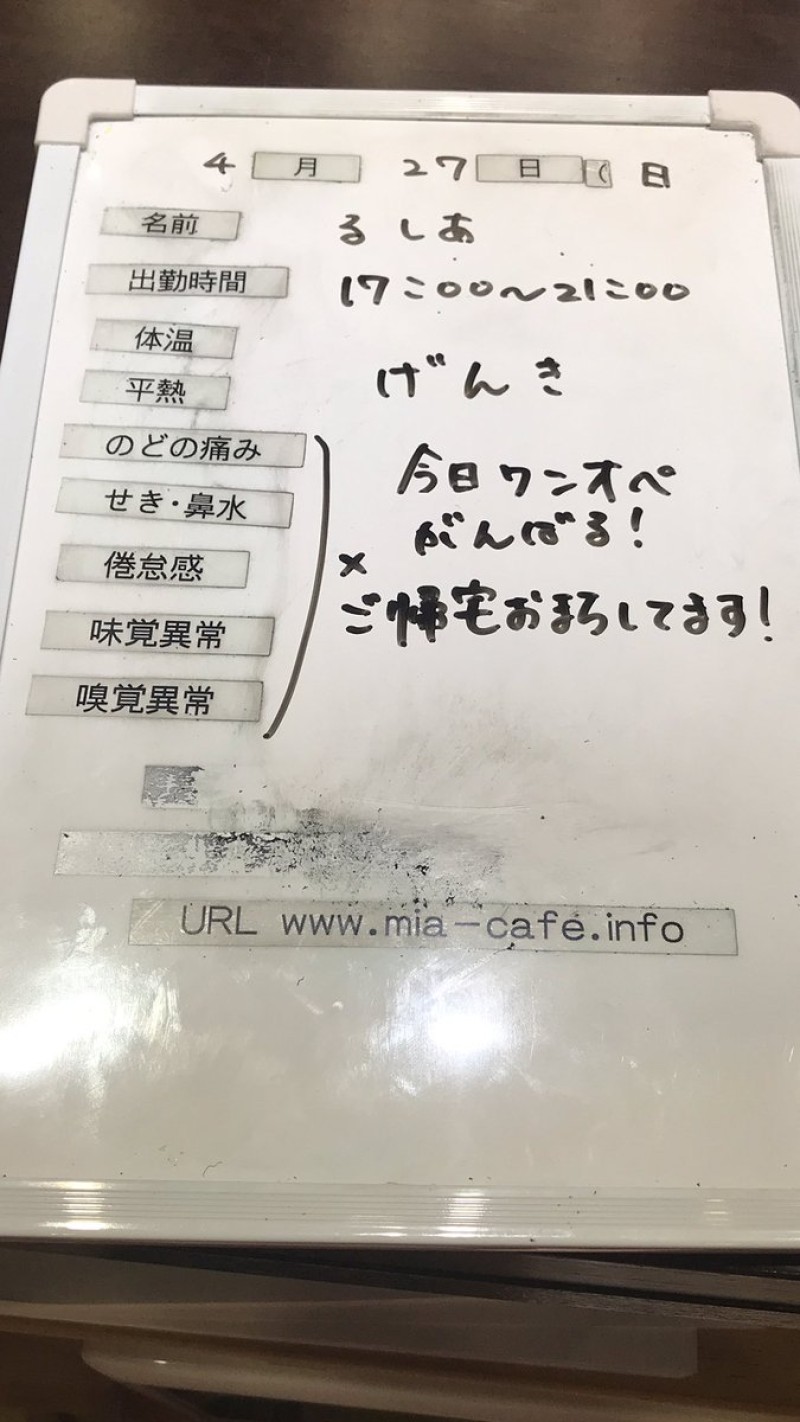 4月 27日( 日
名前 るしあ
出勤時間 17:00〜21:00
体温
平熱 げんき
のどの痛み
せき・鼻水 今日ワンオペ
がんばる!
倦怠感 ×
ご帰宅おまちしてます!
味覚異常
嗅覚異常
URL www.mia-cafe.info